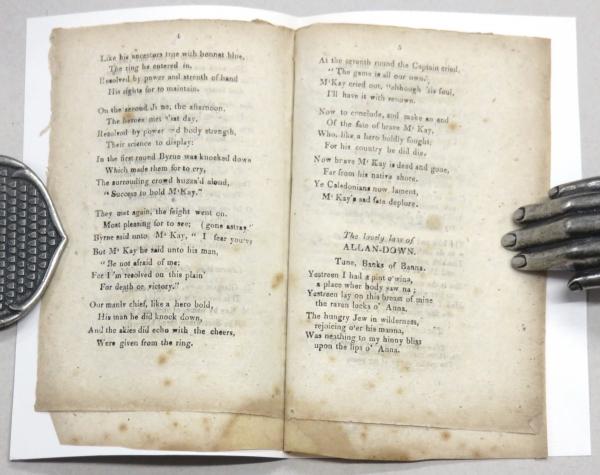 4
Like his ancestors true with bonnet blue,
The ring he entered in,
Resolved by power and strenth of hand
His rights for to maintain.
On the second June, the afternoon,
The heroes met that day,
Resolved by power and body strength,
Their science to display:
In the first round Byrne was knocked down
Which made them for to cry,
The surrouding crowd huzza'd aloud,
"Success to bold McKay."
They met again, the feight went on.
Most pleasing for to see; (gone astray."
Byrne said unto McKay, "I fear you're
But McKay he said unto his man,
"Be not afraid of me;
For I'm resolved on this plain
For death or victory."
Our manly chief, like a hero bold,
His man he did knock down,
And the skies did echo with the cheers,
Were given from the ring.
5
At the seventh round the Captain cried,
"The game is all our own.
McKay cried out, "although 'tis foul,
I'll have it with renown.
Now to conclude, and make an end
Of the fate of brave McKay,
Who, like a hero boldly fought;
For his country he did die,
Now brave McKay is dead and gone,
Far from his native shore.
Ye Caledonians now lament,
McKay's sad fate deplore.
The lovely lass of
ALLAN-DOWN.
Tune, Banks of Banna.
Yestreen I had a pint o' wine,
a place wher body saw na;
Yestreen lay on this breast of mine
the raven locks o' Anna.
The hungry Jew in wilderness,
rejoicing o'er his manna,
Was neathing to my hinny bliss
upon the lips o' Anna.